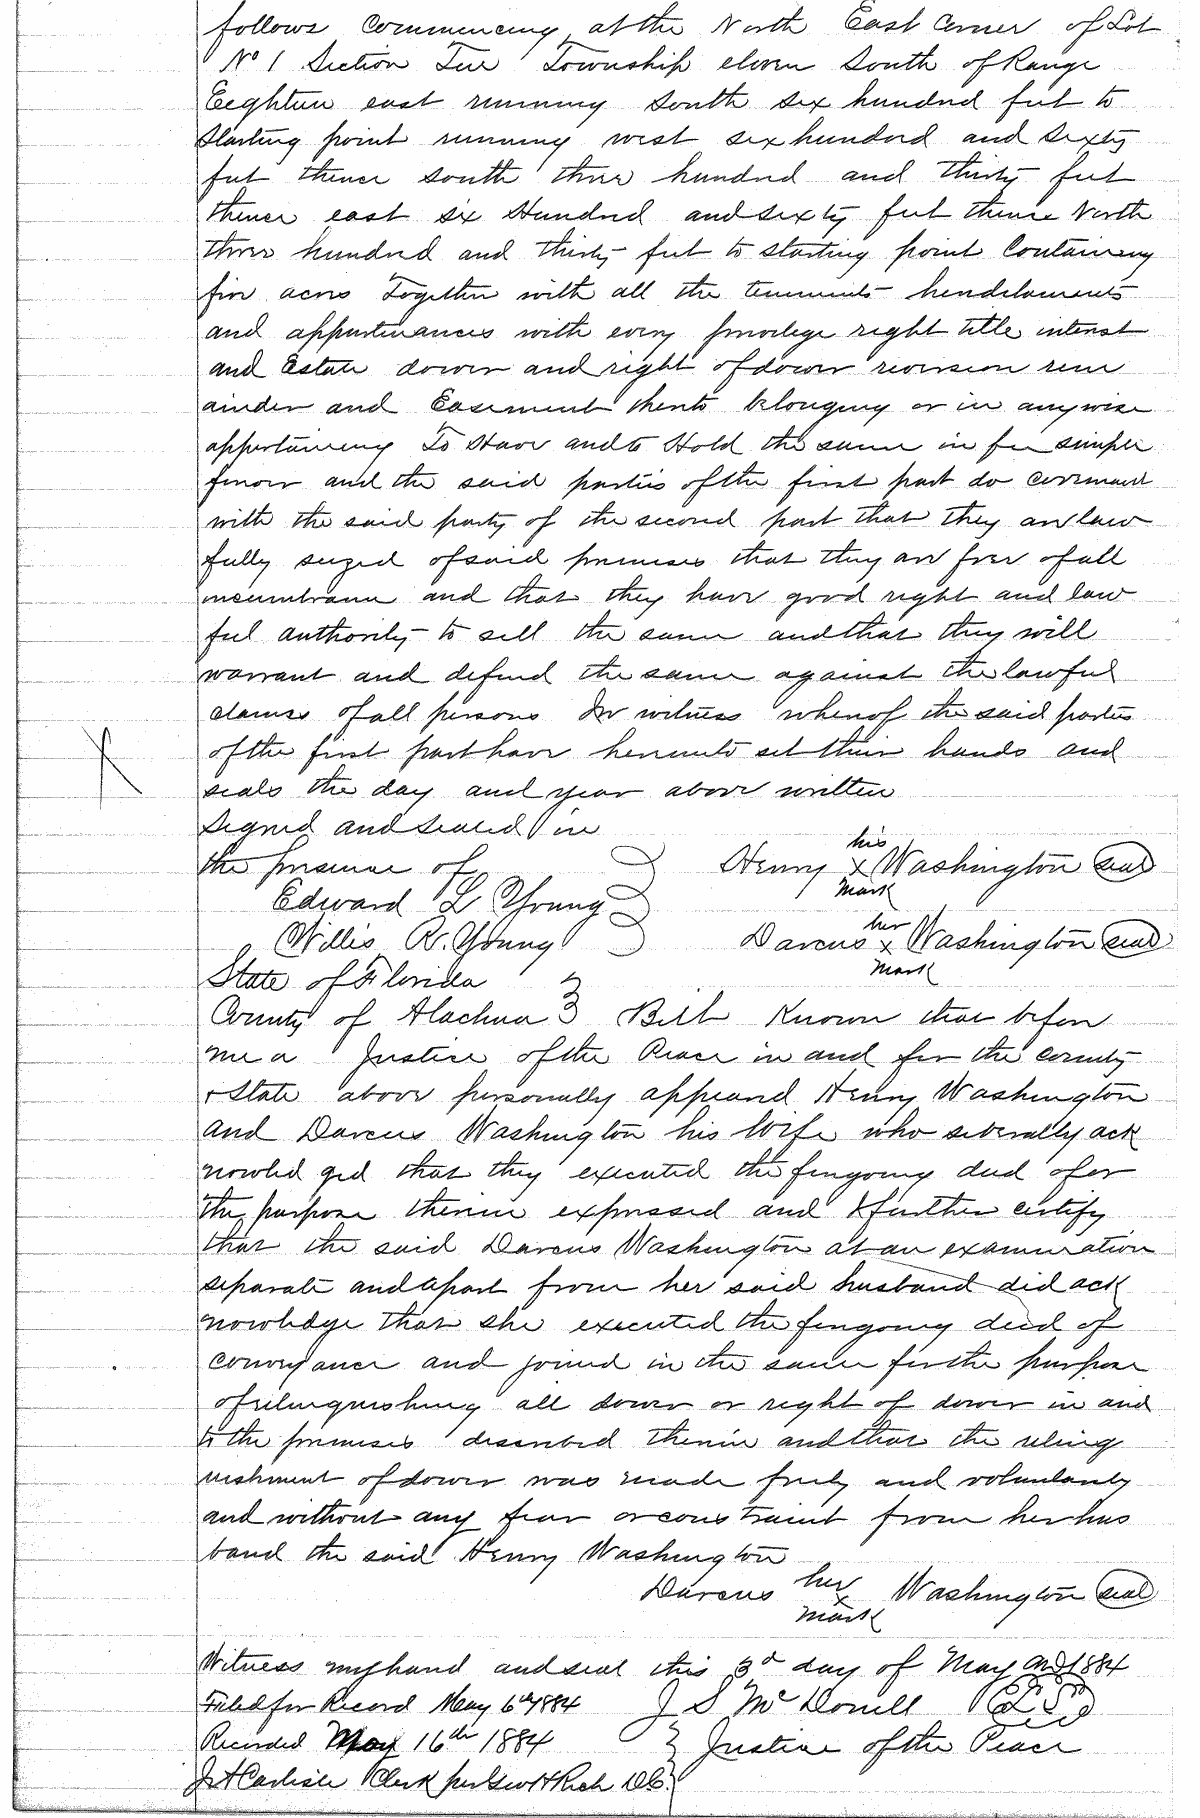 follows commencing at the North East Corner of Lot
No 1 Section Township eleven South of Range
Eeghteen east running South six hundred feet to
Starting point running west six hundred and sixty
feet thence south three hundred and thirty feet
thence east six Hundred and sixty feet thence North
three hundred and thirty feet to starting point Containing
five acres Together with all the tenements
and appurtenances with every privilege right title interest
and Estate dower and right of dower reversion rem
ainder and Easement thereto belonging or in anywise
appertaining To Have and to Hold the same in fee simple
forever and the said parties of the first part do covenant
with the said party of the second part that they are law
fully seized of said premises that they are free of all
incumbrance and that they have good right and law
ful authority to sell the same and that they will
warrant and defend the same against the lawful
claims of all persons In witness whereof the said parties
of the first part have hereunto set their hands and
seals the day and year above written
Signed and Sealed in
the presence of
his
Henry x Washington seal
mark
Edward L Young
Willis R. Young
her
Darcus x Washington seal
mark
State of Florida
County of Alachua Be it Known that before
me a Justice of the Peace in and for the county
+ State above personally appeared Henry Washington
and Darcus Washington his Wife who seberally ack
nowled ged that they executed the foregoing deed of for
the purpose therein expressed and I further certify
that the said Darcus Washington at an examination
separate and apart from her said husband did ack
nowledge that she executed the foregoing deed of
conveyance and joined in the same for the purpose
of relinquishing all dower or right of dower in and
to the premises described therein and that the relinq
uishment of dower was made freely and voluntarily
and without any fear or constraint from her hus
band the said Henry Washington
her
Darcus x Washington seal
mark
Witness my hand and seal this 3d day of May AD 1884
Filed for Record May 6th 1884 J S McDonell
Recorded May 16th 1884 Justice of the Peace
J A Carlisle Clerk per Geo H Rich DC